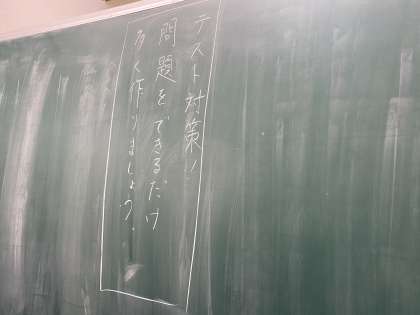 テスト対策!
問題をできるだけ
多く作りましょう。